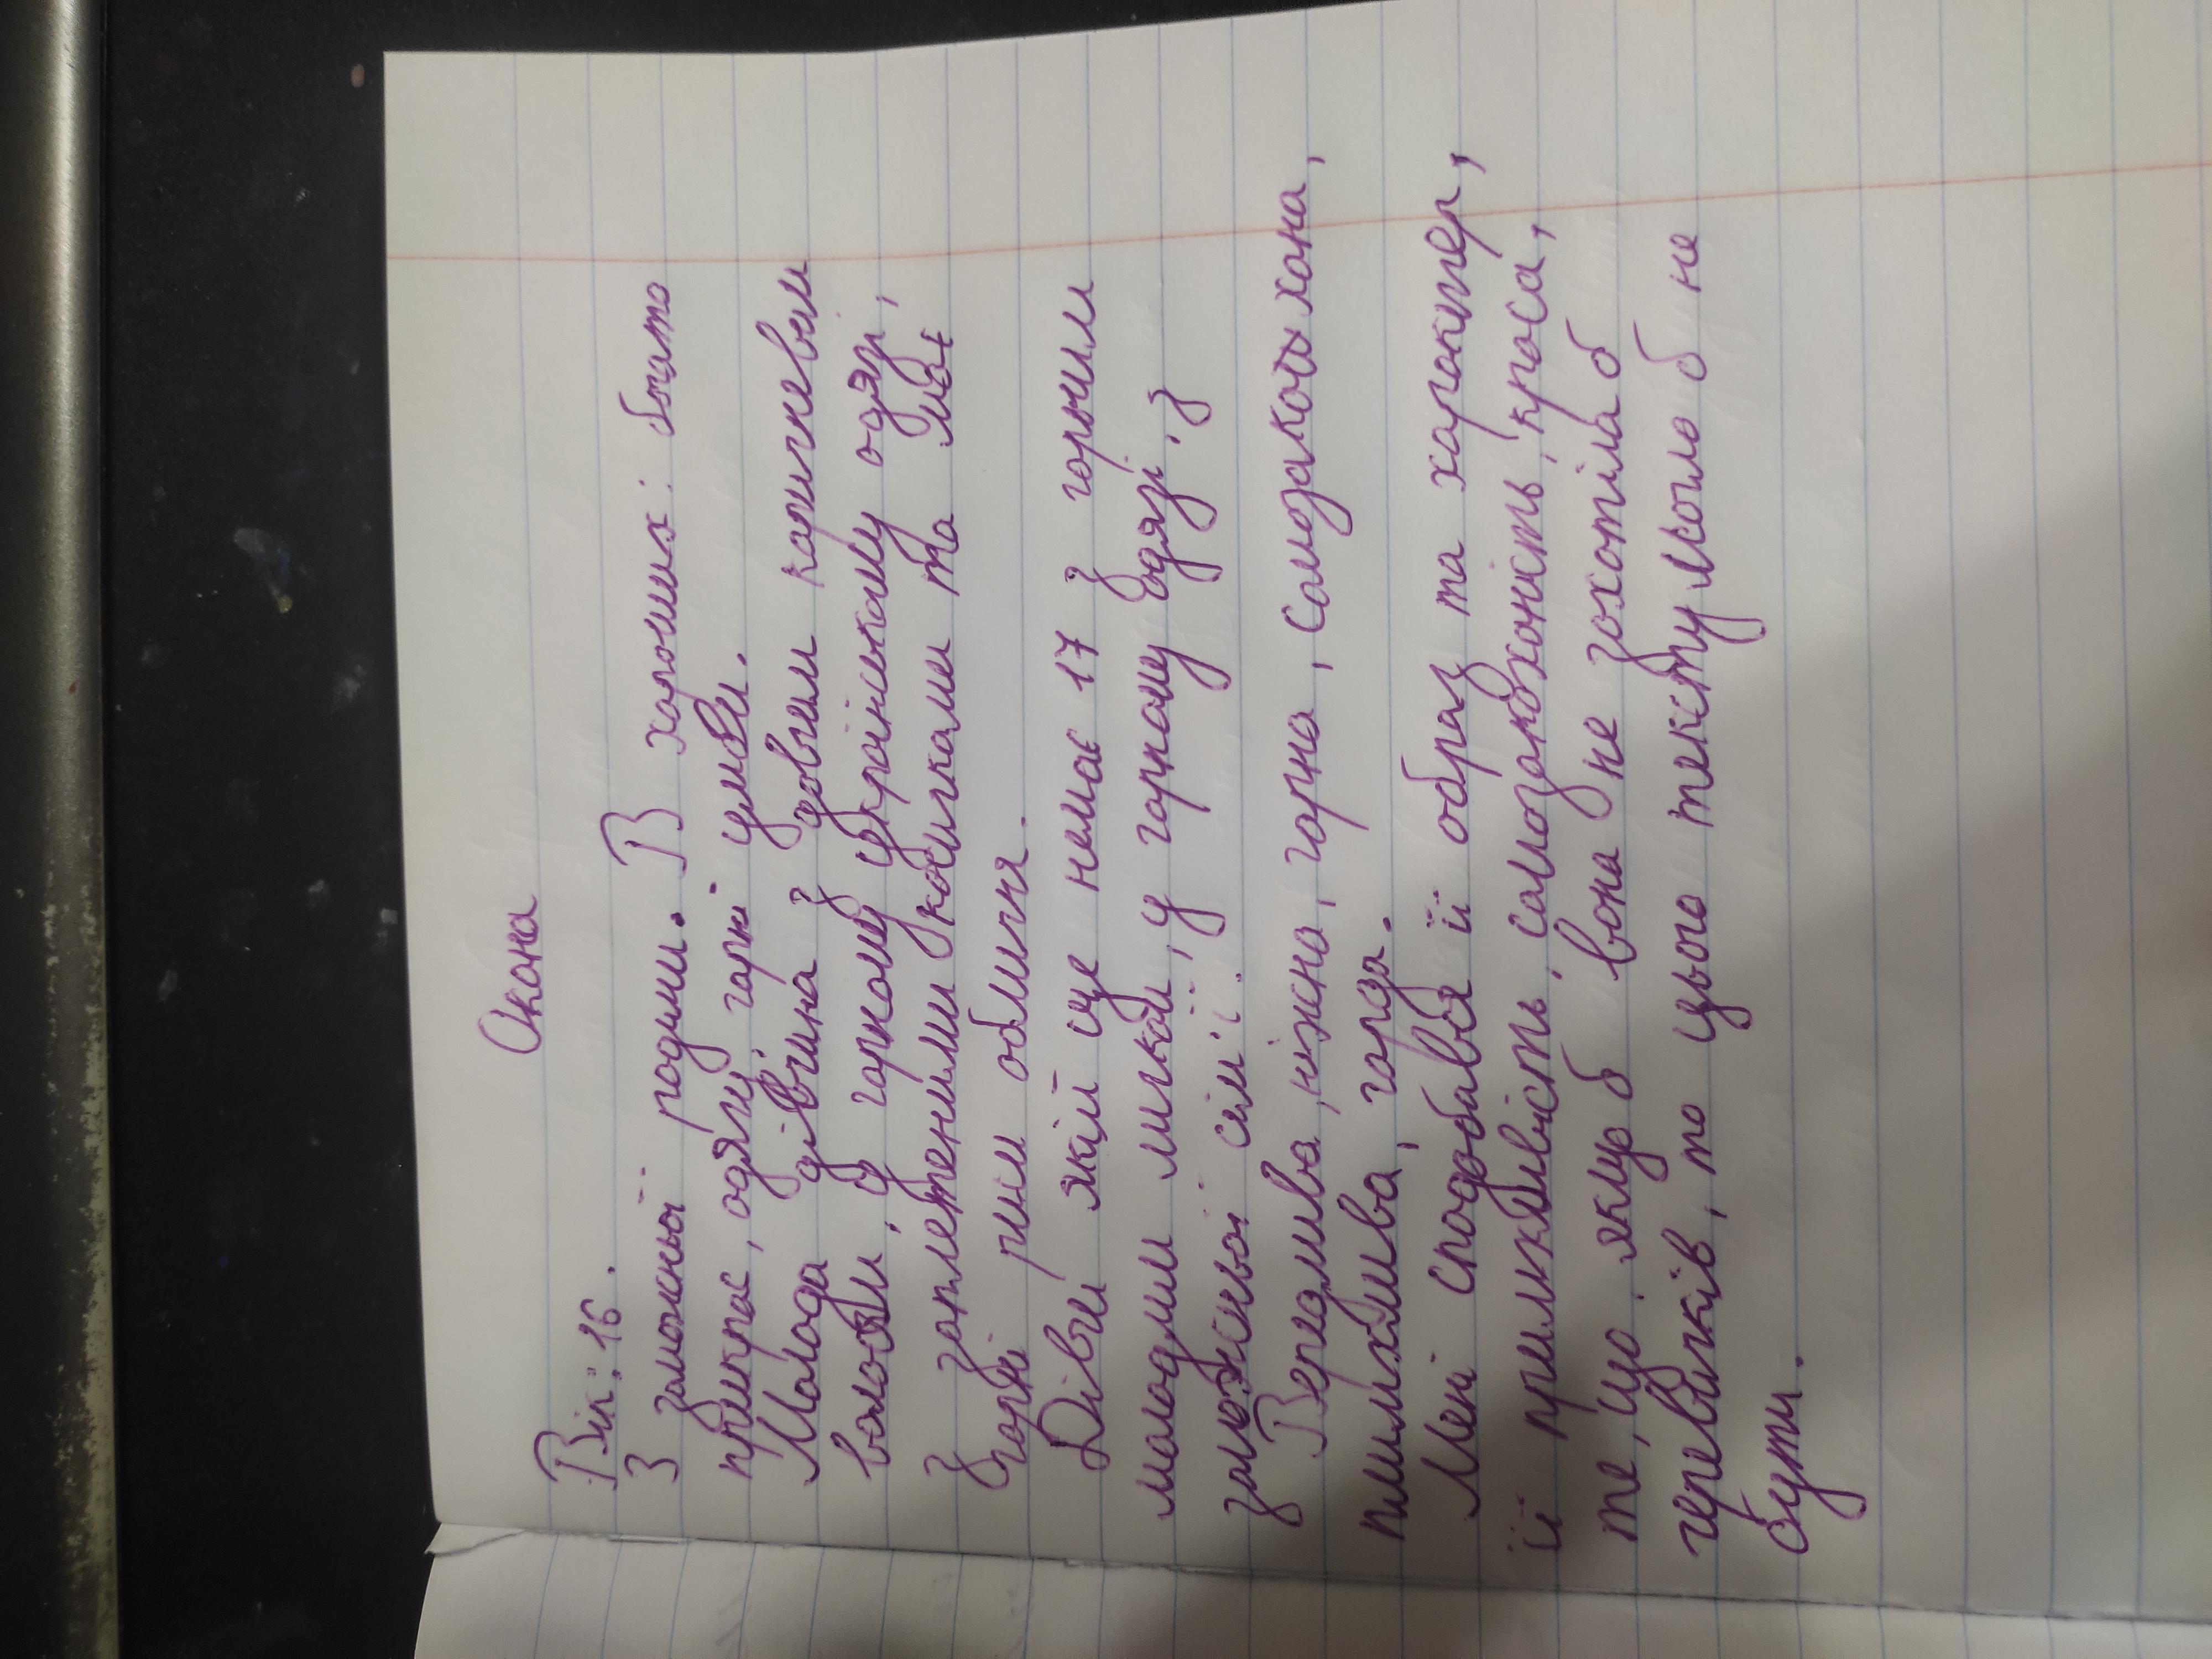 Оксана
Вік: 16.
З заможньої родини. В хароших: богато
прикрас, одягу, гарні умови.
Молода дівчина з довгим каричневим
волоссям, у гарному українському одязі,
З заплетеними косичками та має
гарні риси обличчя.
Дівчи якій ще немає 17 з горним
молодим личком, у гарному одязі, з
заможньої сім'ї.
Вередлива, ніжна, гарна, самозакоhохана,
пихлива, горда.
Мені сподобався її образ та характер,
її примхливість, самозакоханість, краса,
те, що якщо б вона не захотіла б
черевичків, то цього тексту могло б не
бути.